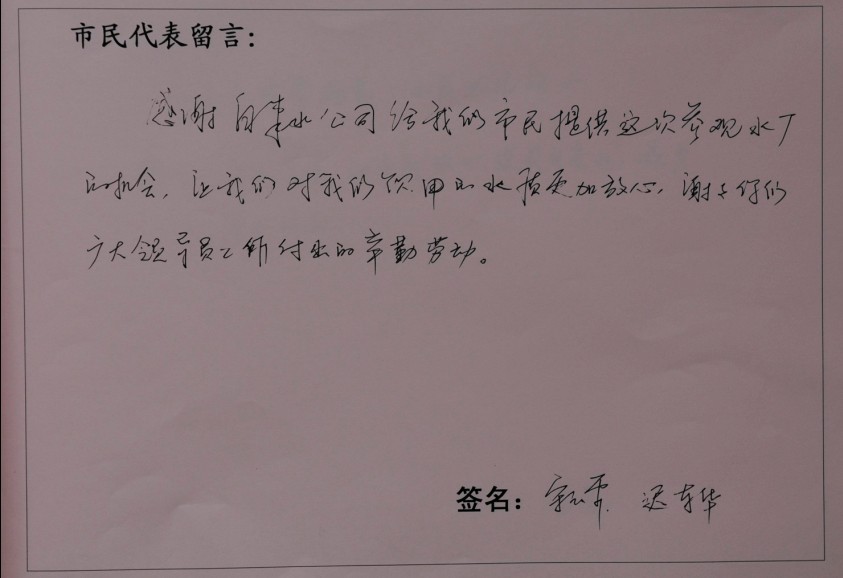 市民代表留言：
感谢自来水公司给我们市民提供这次参观水厂
的机会，让我们对我们饮用的水质更加放心，谢谢你们
广大领导员工所付出的辛勤劳动。
签名： 迟东华